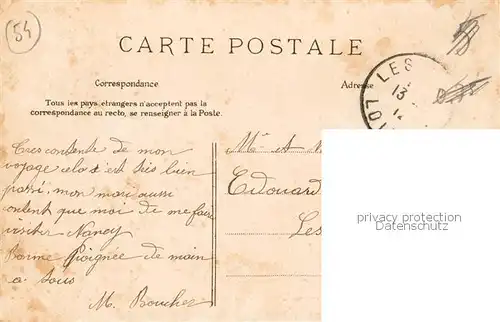 54
CARTE POSTALE
Correspondance
Adresse
Tous les pays étrangers n'acceptent pas la
correspondance au recto, se renseigner à la Poste.
LES
13
Tres contente de mon
voyage cela s'est très bien
passé, mon mari aussi
content que moi de me faire
visiter Nancy
Bonne Poignée de main
a tous
M. Boucher
Mr et
Edouard
Les
privacy protection
Datenschutz